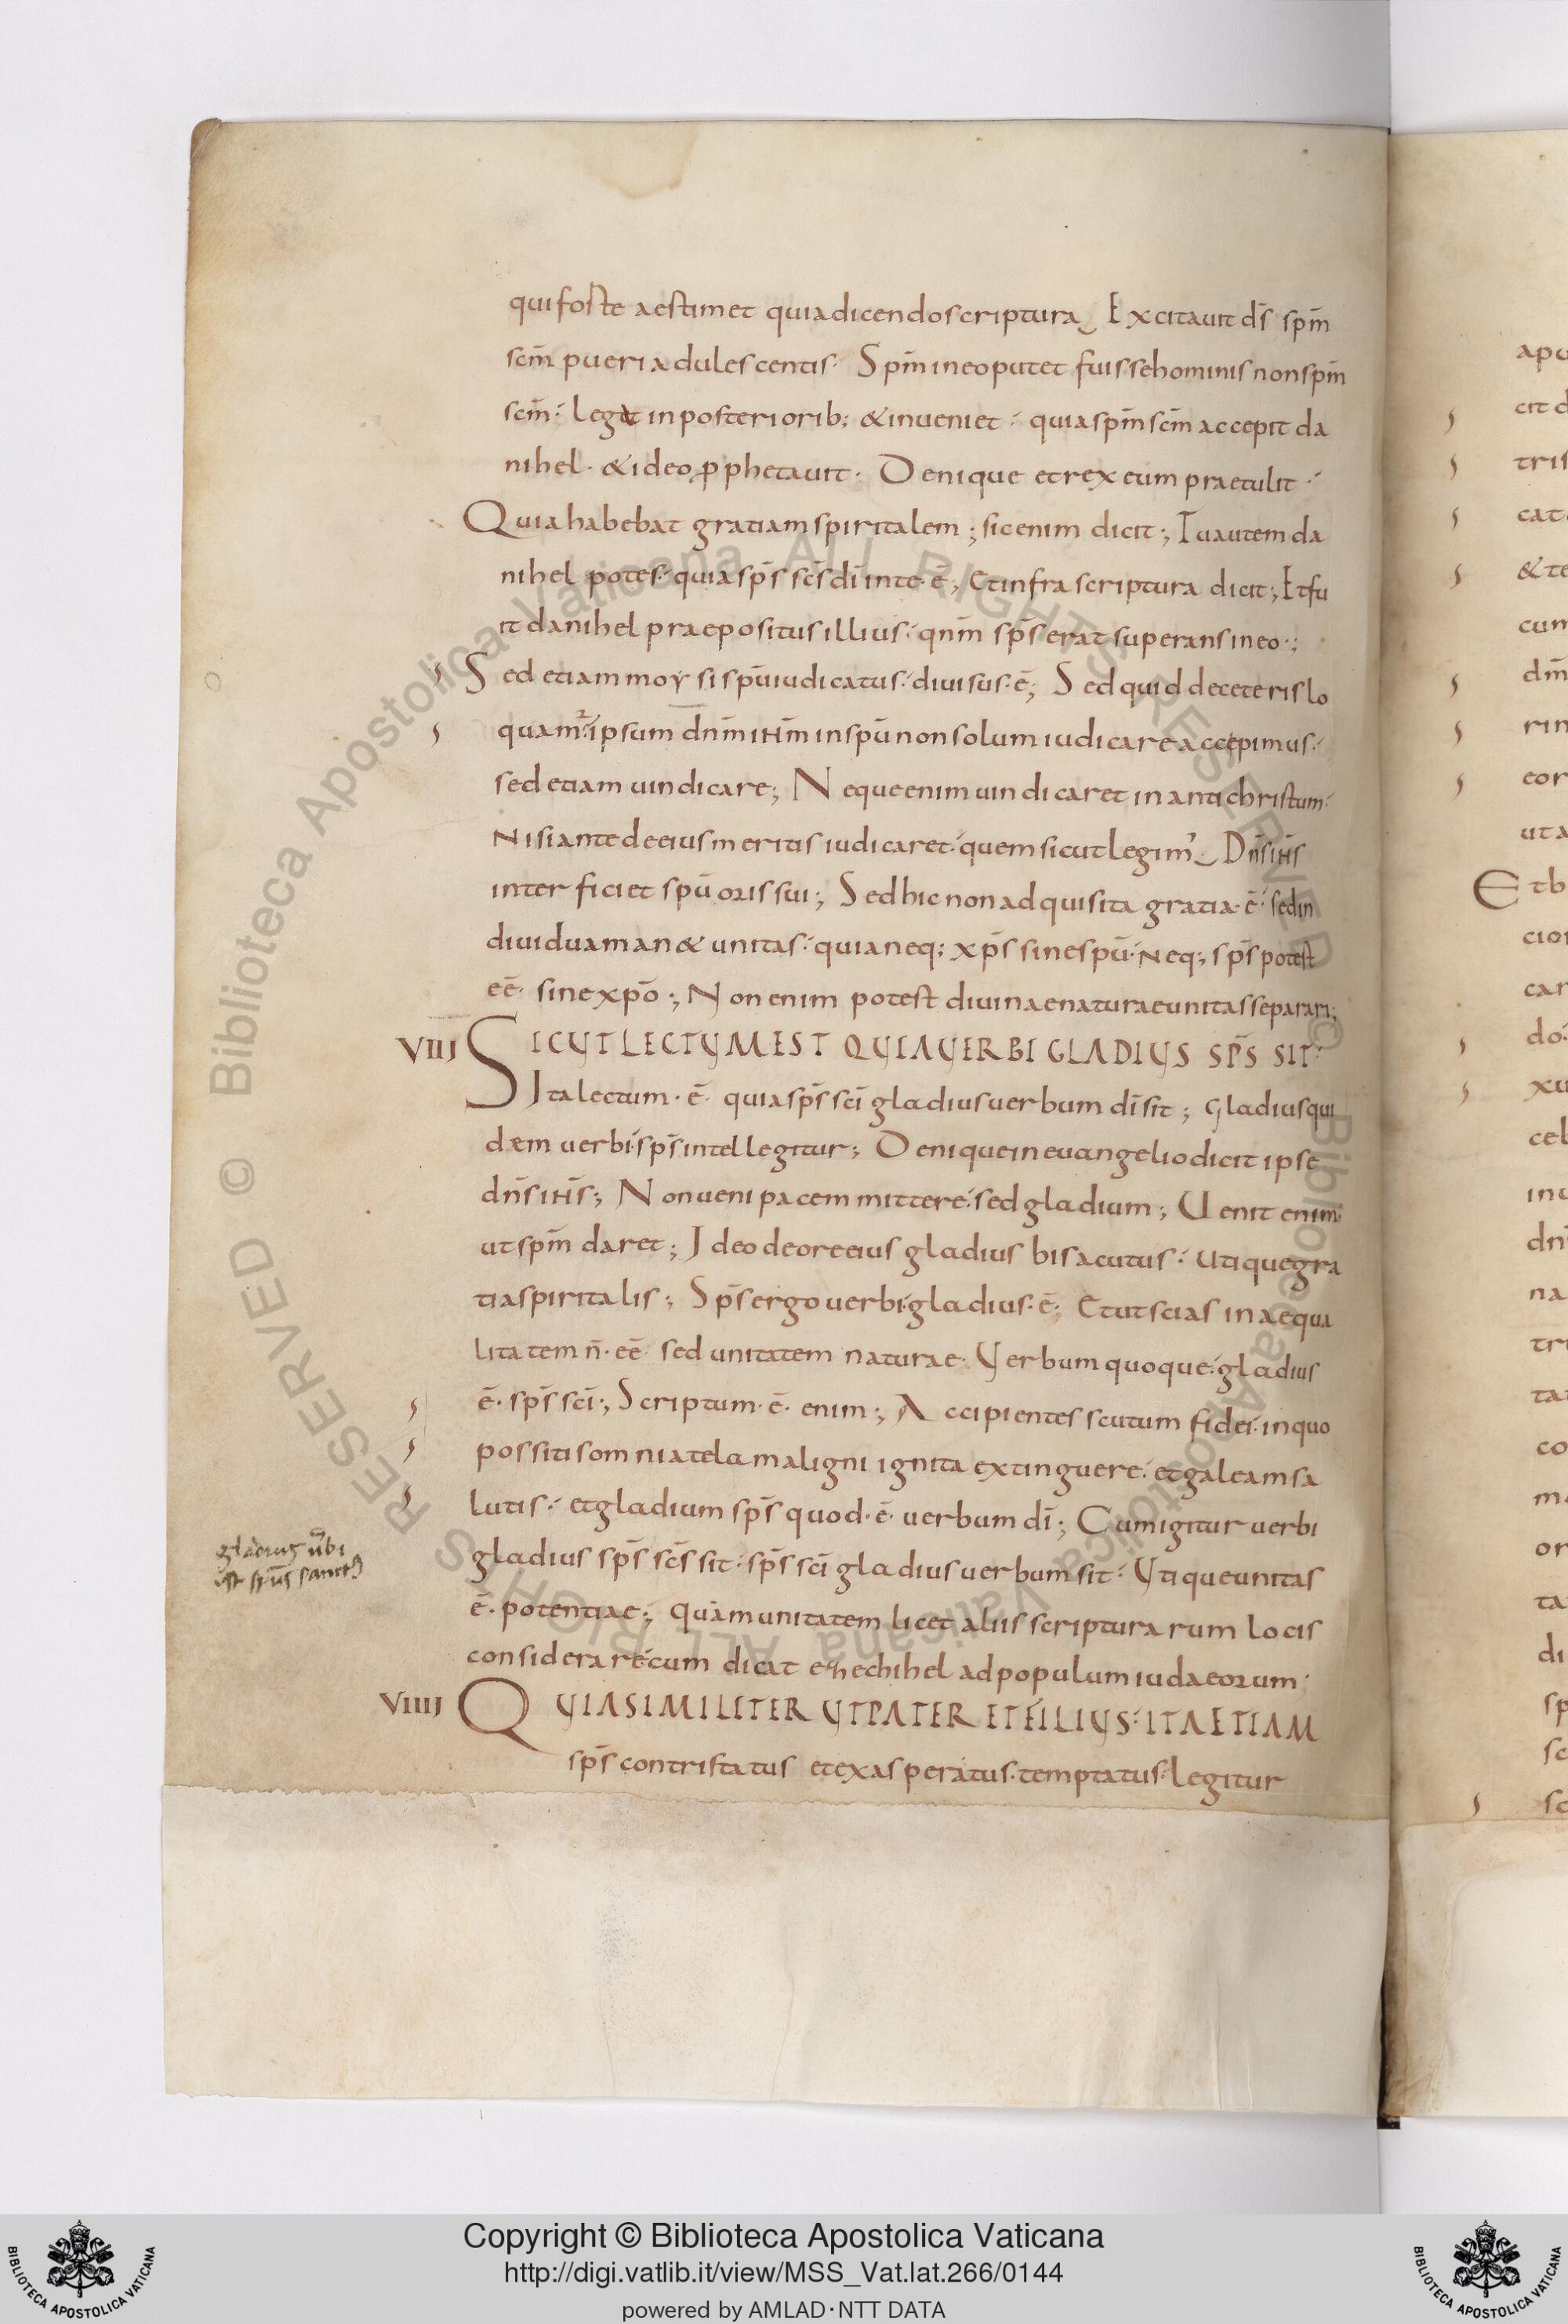 qui forte aestimet quia dicendo scriptura Excitauit ds̄ spm̄
scm̄ pueri adulescentis· Spm̄ in eo putet fuisse hominis non spm̄
scm̄· legat in posteriorib; & inueniet· quia spm̄ scm̄ accepit da
nihel· & ideo ꝓphetauit· Denique et rex eum praetulit·
Quia habebat gratiam spiritalem; sic enim dicit; Tu autem da
nihel potes· quia sps̄ scs̄ dī in te·ē; Et infra scriptura dicit; Et fu
it danihel praepositus illius· qnm̄ sps̄ erat superans in eo·;
Sed etiam moysi spū iudicatus· diuisus·ē; Sed quid de ceteris lo
quamur· ipsum dnm̄ ihm̄ in spū non solum iudicare accepimus·
sed etiam uindicare; Neque enim uindicaret in antichristum·
Nisi ante de eius meritis iudicaret· quem sicut legim' Dns̄ ihs̄
interficiet spū oris sui; Sed hic non adquisita gratia·ē· sed in
diuidua man& unitas· quia neq; xps̄ sine spū· Neq; sps̄ potest
eē· sine xpō; Non enim potest diuinae naturae unitas separari;
VIIJ SICUT LECTUM EST QUIA UERBI GLADIUS SPS̄ SIT·
Ita lectum·ē· quia sps̄ scī gladius uerbum dī sit; Gladius qui
dem uerbi· sps̄ intellegitur; Denique in euangelio dicit ipse
dns̄ ihs̄; Non ueni pacem mittere· sed gladium; Uenit enim·
ut spm̄ daret; Ideo de ore eius gladius bis acutus· Utique gra
tia spiritalis; Sps̄ ergo uerbi· gladius·ē; Et ut scias inaequa
litatem n̄·eē· sed unitatem naturae· Uerbum quoque· gladius
ē· sps̄ scī·; Scriptum·ē· enim; Accipientes scutum fidei· in quo
possitis omnia tela maligni ignita extinguere· et galeam sa
lutis· et gladium sps̄ quod·ē· uerbum dī; Cum igitur uerbi
gladius sps̄ scs̄ sit· sps̄ scī gladius uerbum sit· Utique unitas
ē· potentiae; quam unitatem licet aliis scripturarum locis
considerare· cum dicat ezechihel ad populum iudaeorum·
VIIIJ QUIA SIMILITER UT PATER ET FILIUS· ITA ETIAM
sps̄ contristatus et exasperatus· temptatus· legitur
gladius ūbi
est spūs sanctꝰ
Copyright © Biblioteca Apostolica Vaticana
http://digi.vatlib.it/view/MSS_Vat.lat.266/0144
powered by AMLAD·NTT DATA